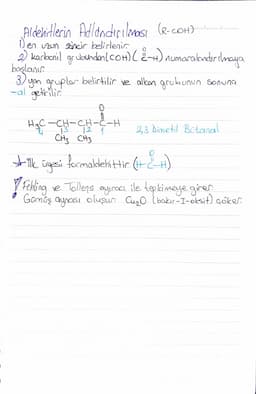 Aldehitlerin Adlandırılması (R-COH)
1) en uzun zincir belirlenir
2) karbonil grubundan (COH) (-C-H) numaralandırılmaya
O
başlanır.
3) yan gruplar belirtilir ve alkan grubunun sonuna
-al getirilir
O
H₃C-CH-CH-C-H 2,3 Dimetil Bütanal
4 3 2 1
CH₃ CH₃
İlk üyesi formaldehittir (H-C-H)
O
Fehling ve Tollens ayıracı ile tepkimeye girer
Gümüş aynası oluşur. Cu₂O (bakır-I-oksit) çöker.